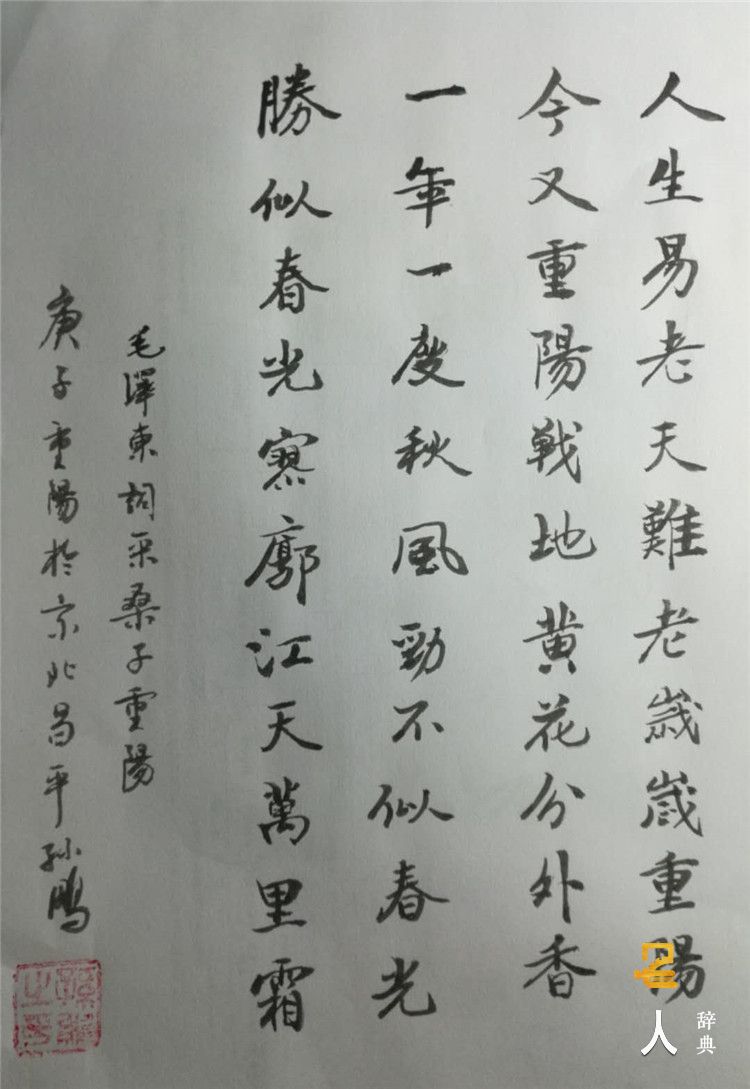 人生易老天難老歲歲重陽
今又重陽戰地黄花分外香
一年一度秋風勁不似春光
勝似春光寥廓江天萬里霜
毛澤東詞采桑子重陽
庚子重陽於京北昌平孙鵬
人
辞典